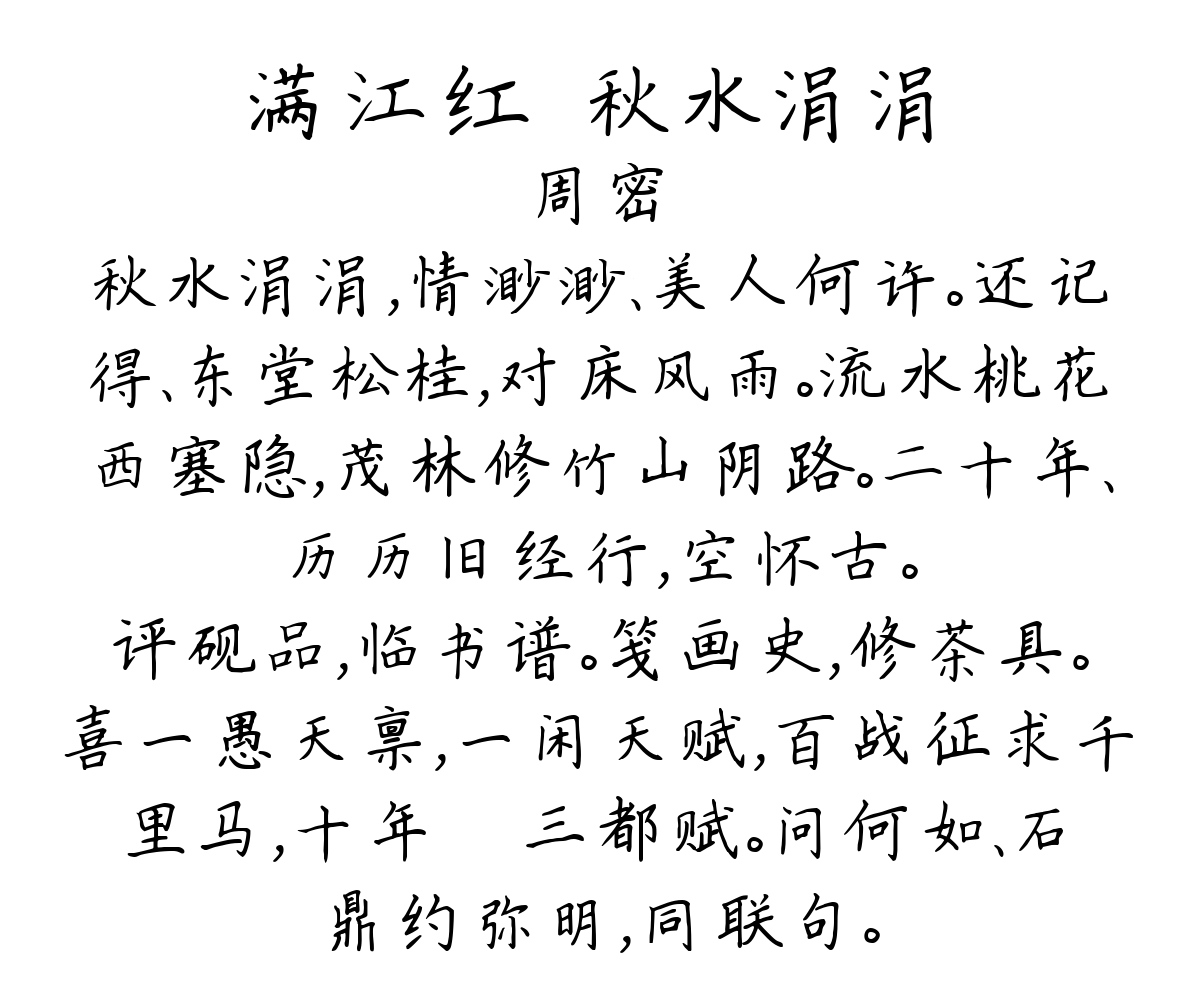 满江红 秋水涓涓
周密
秋水涓涓,情渺渺、美人何许。还记
得、东堂松桂,对床风雨。流水桃花
西塞隐,茂林修竹山阴路。二十年、
历历旧经行,空怀古。
评砚品,临书谱。笺画史,修茶具。
喜一愚天禀,一闲天赋,百战征求千
里马,十年 三都赋。问何如、石
鼎约弥明,同联句。